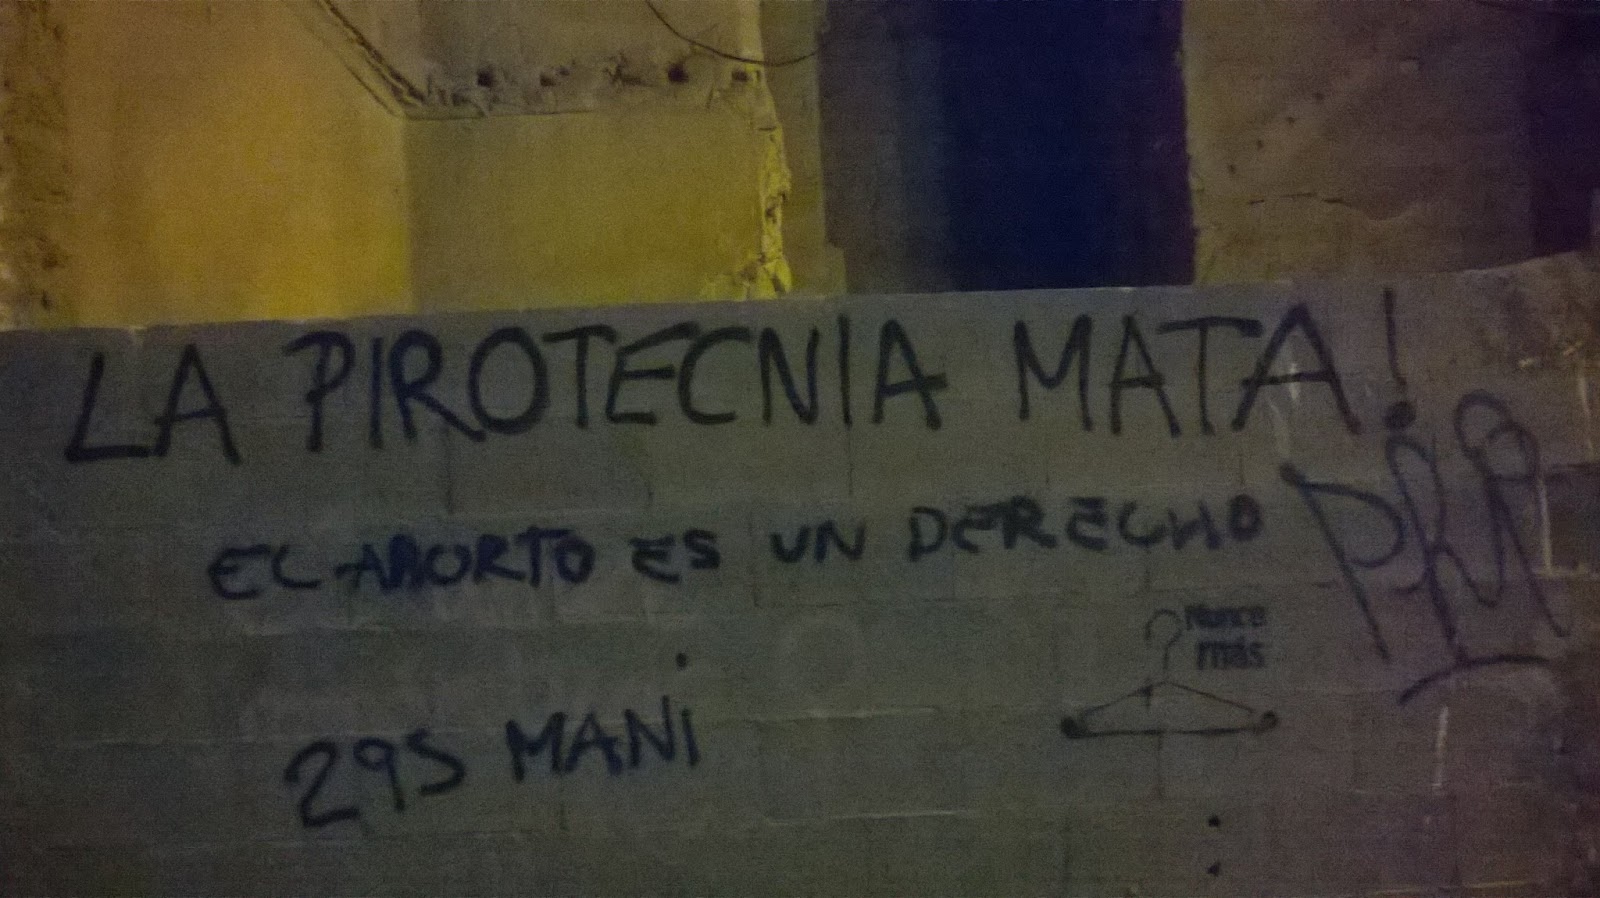 LA PIROTECNIA MATA!
EL ABORTO ES UN DERECHO
Nunca
más
295 MANI